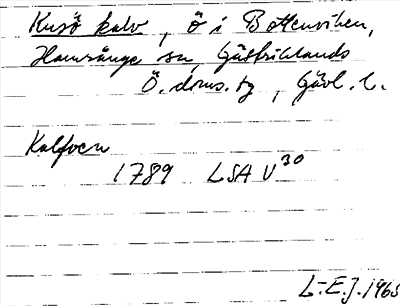 Kusö kalv, ö i Bottenviken,
Hamrånge sn, Gästriklands
Ö. doms. tg, Gävl. l.
Kalfven
1789 LSA V30
L-E.J. 1965